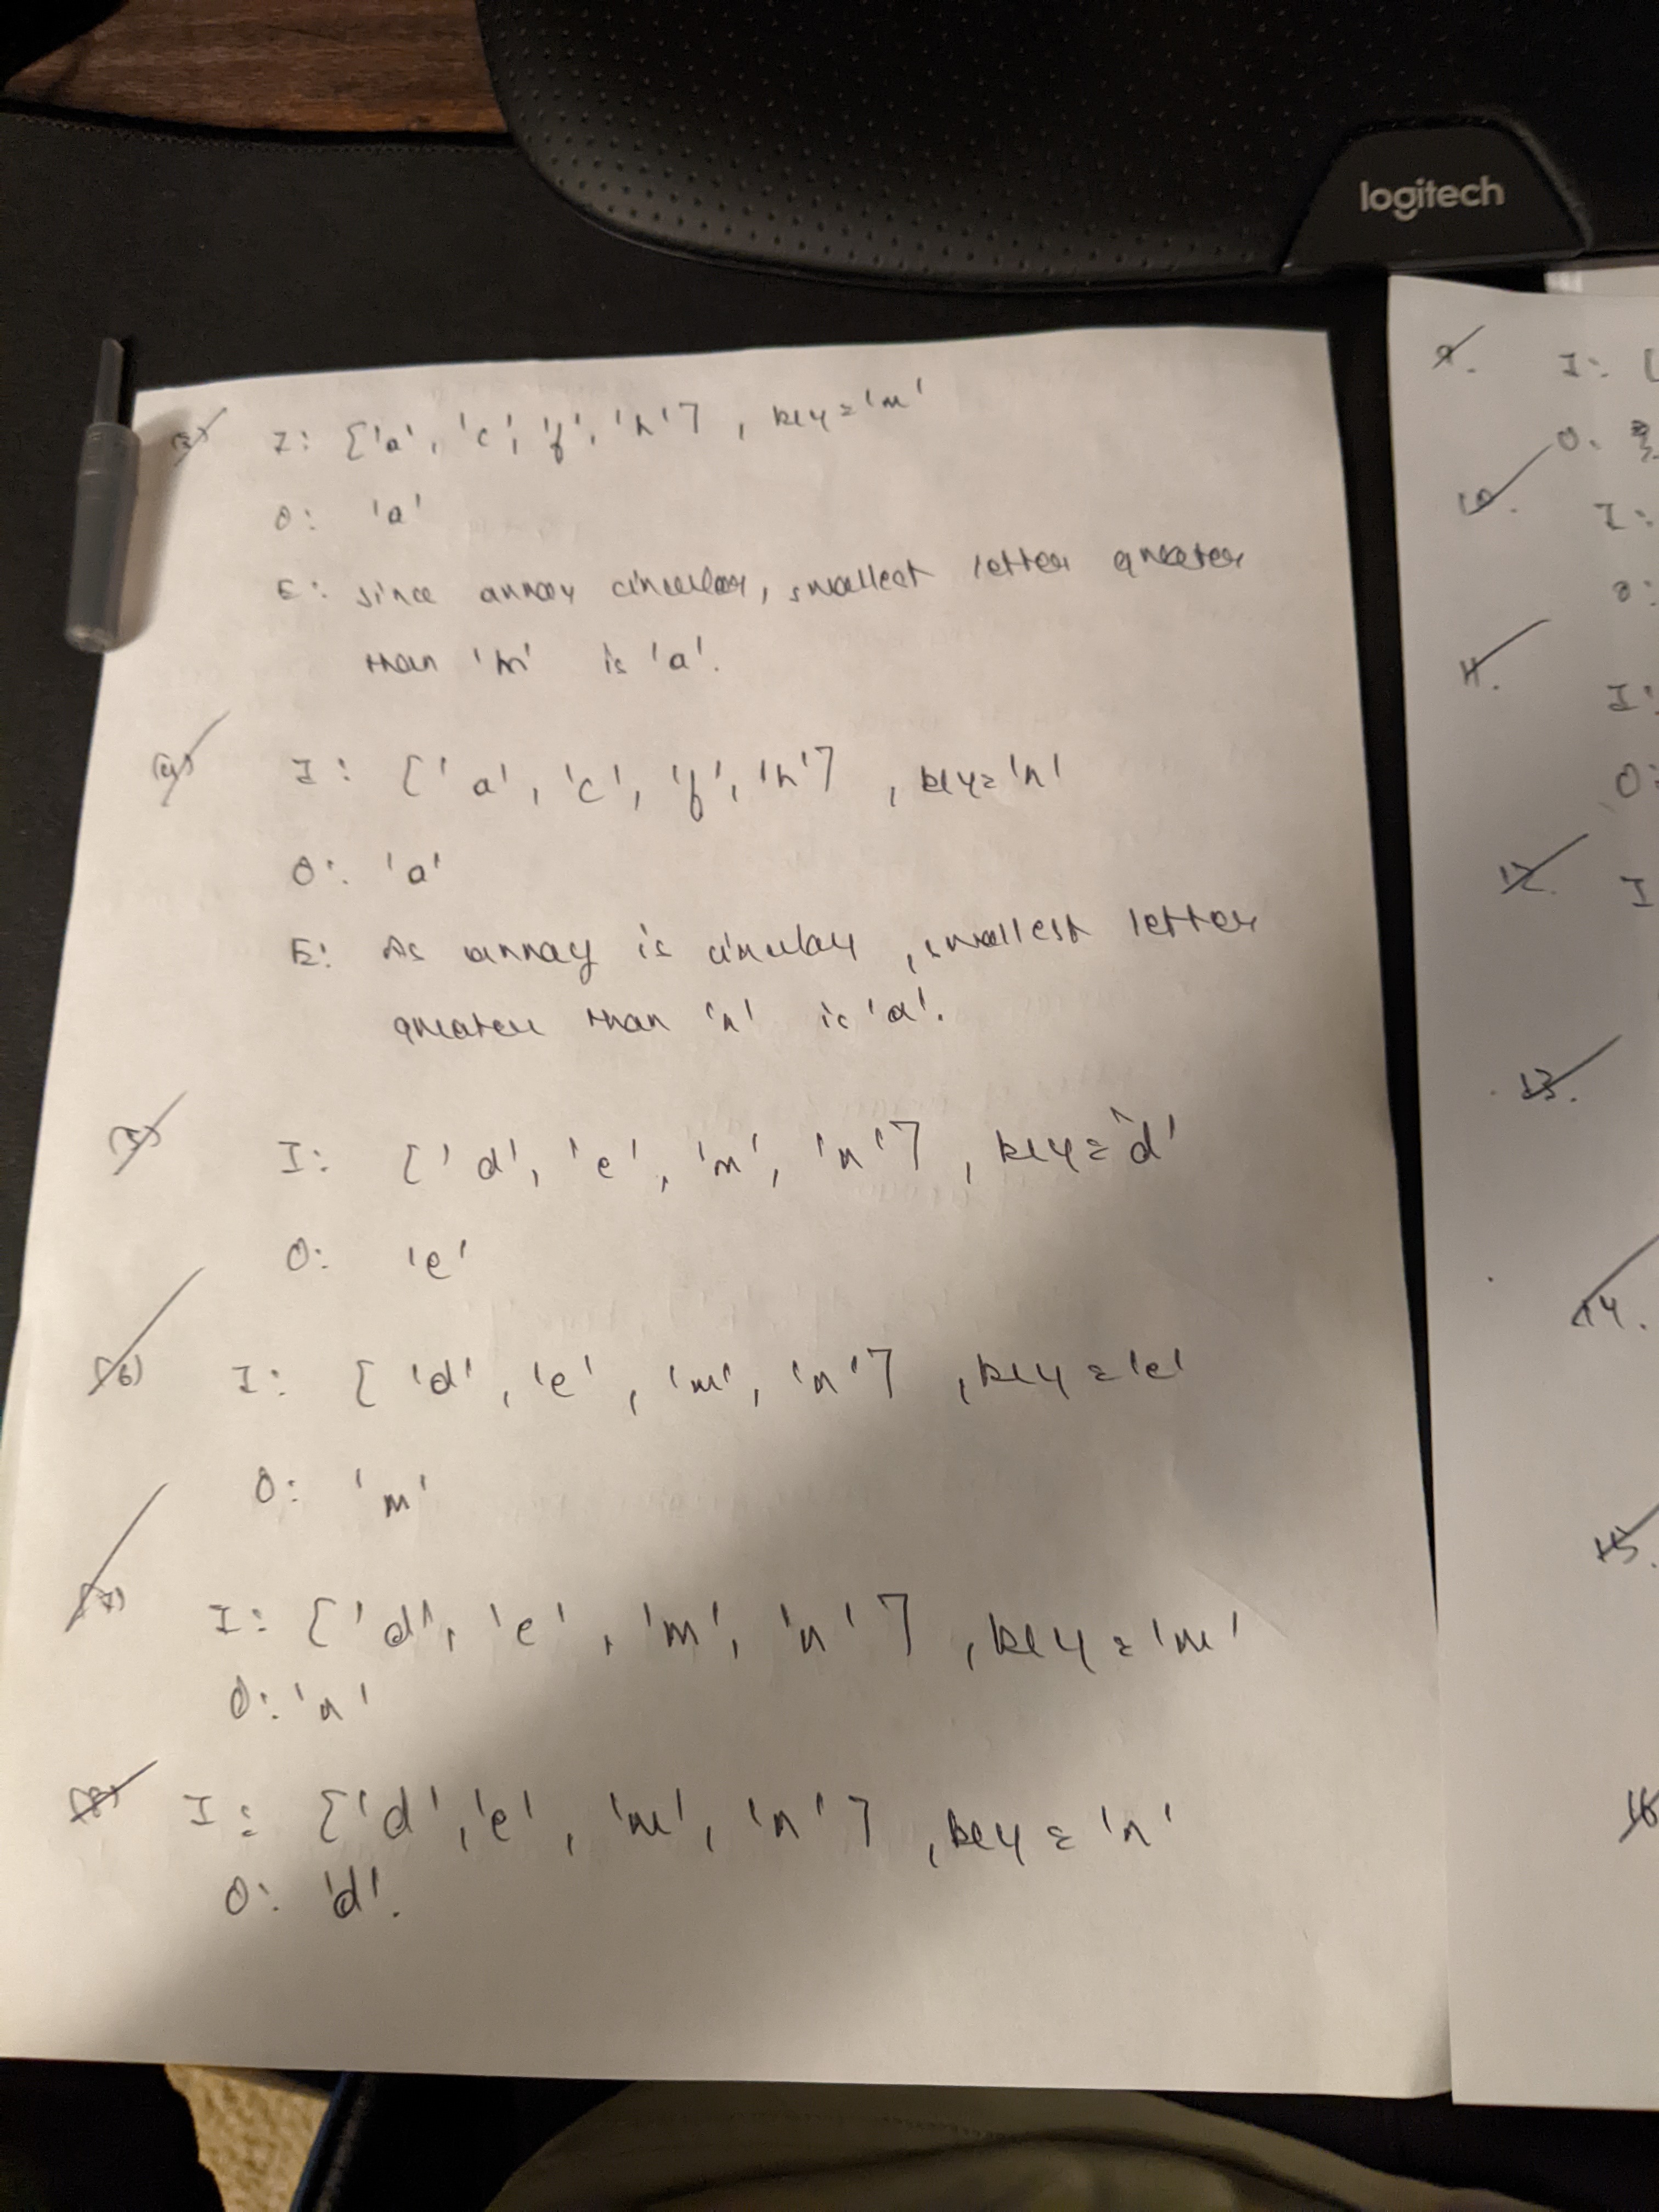 logitech
(3) I: ['a', 'c', 'f', 'h'], key='m'
O: 'a'
E: since array circular, smallest letter greater
than 'm' is 'a'.
(4) I: ['a', 'c', 'f', 'h'], key='n'
O: 'a'
E: As array is circular, smallest letter
greater than 'n' is 'a'.
(5) I: ['d', 'e', 'm', 'n'], key='d'
O: 'e'
(6) I: ['d', 'e', 'm', 'n'], key='e'
O: 'm'
(7) I: ['d', 'e', 'm', 'n'], key='m'
O: 'n'
(8) I: ['d', 'e', 'm', 'n'], key='n'
O: 'd'.
9. I: [
O:
10. I:
O:
11. I:
O:
12. I
13.
14.
15.
16